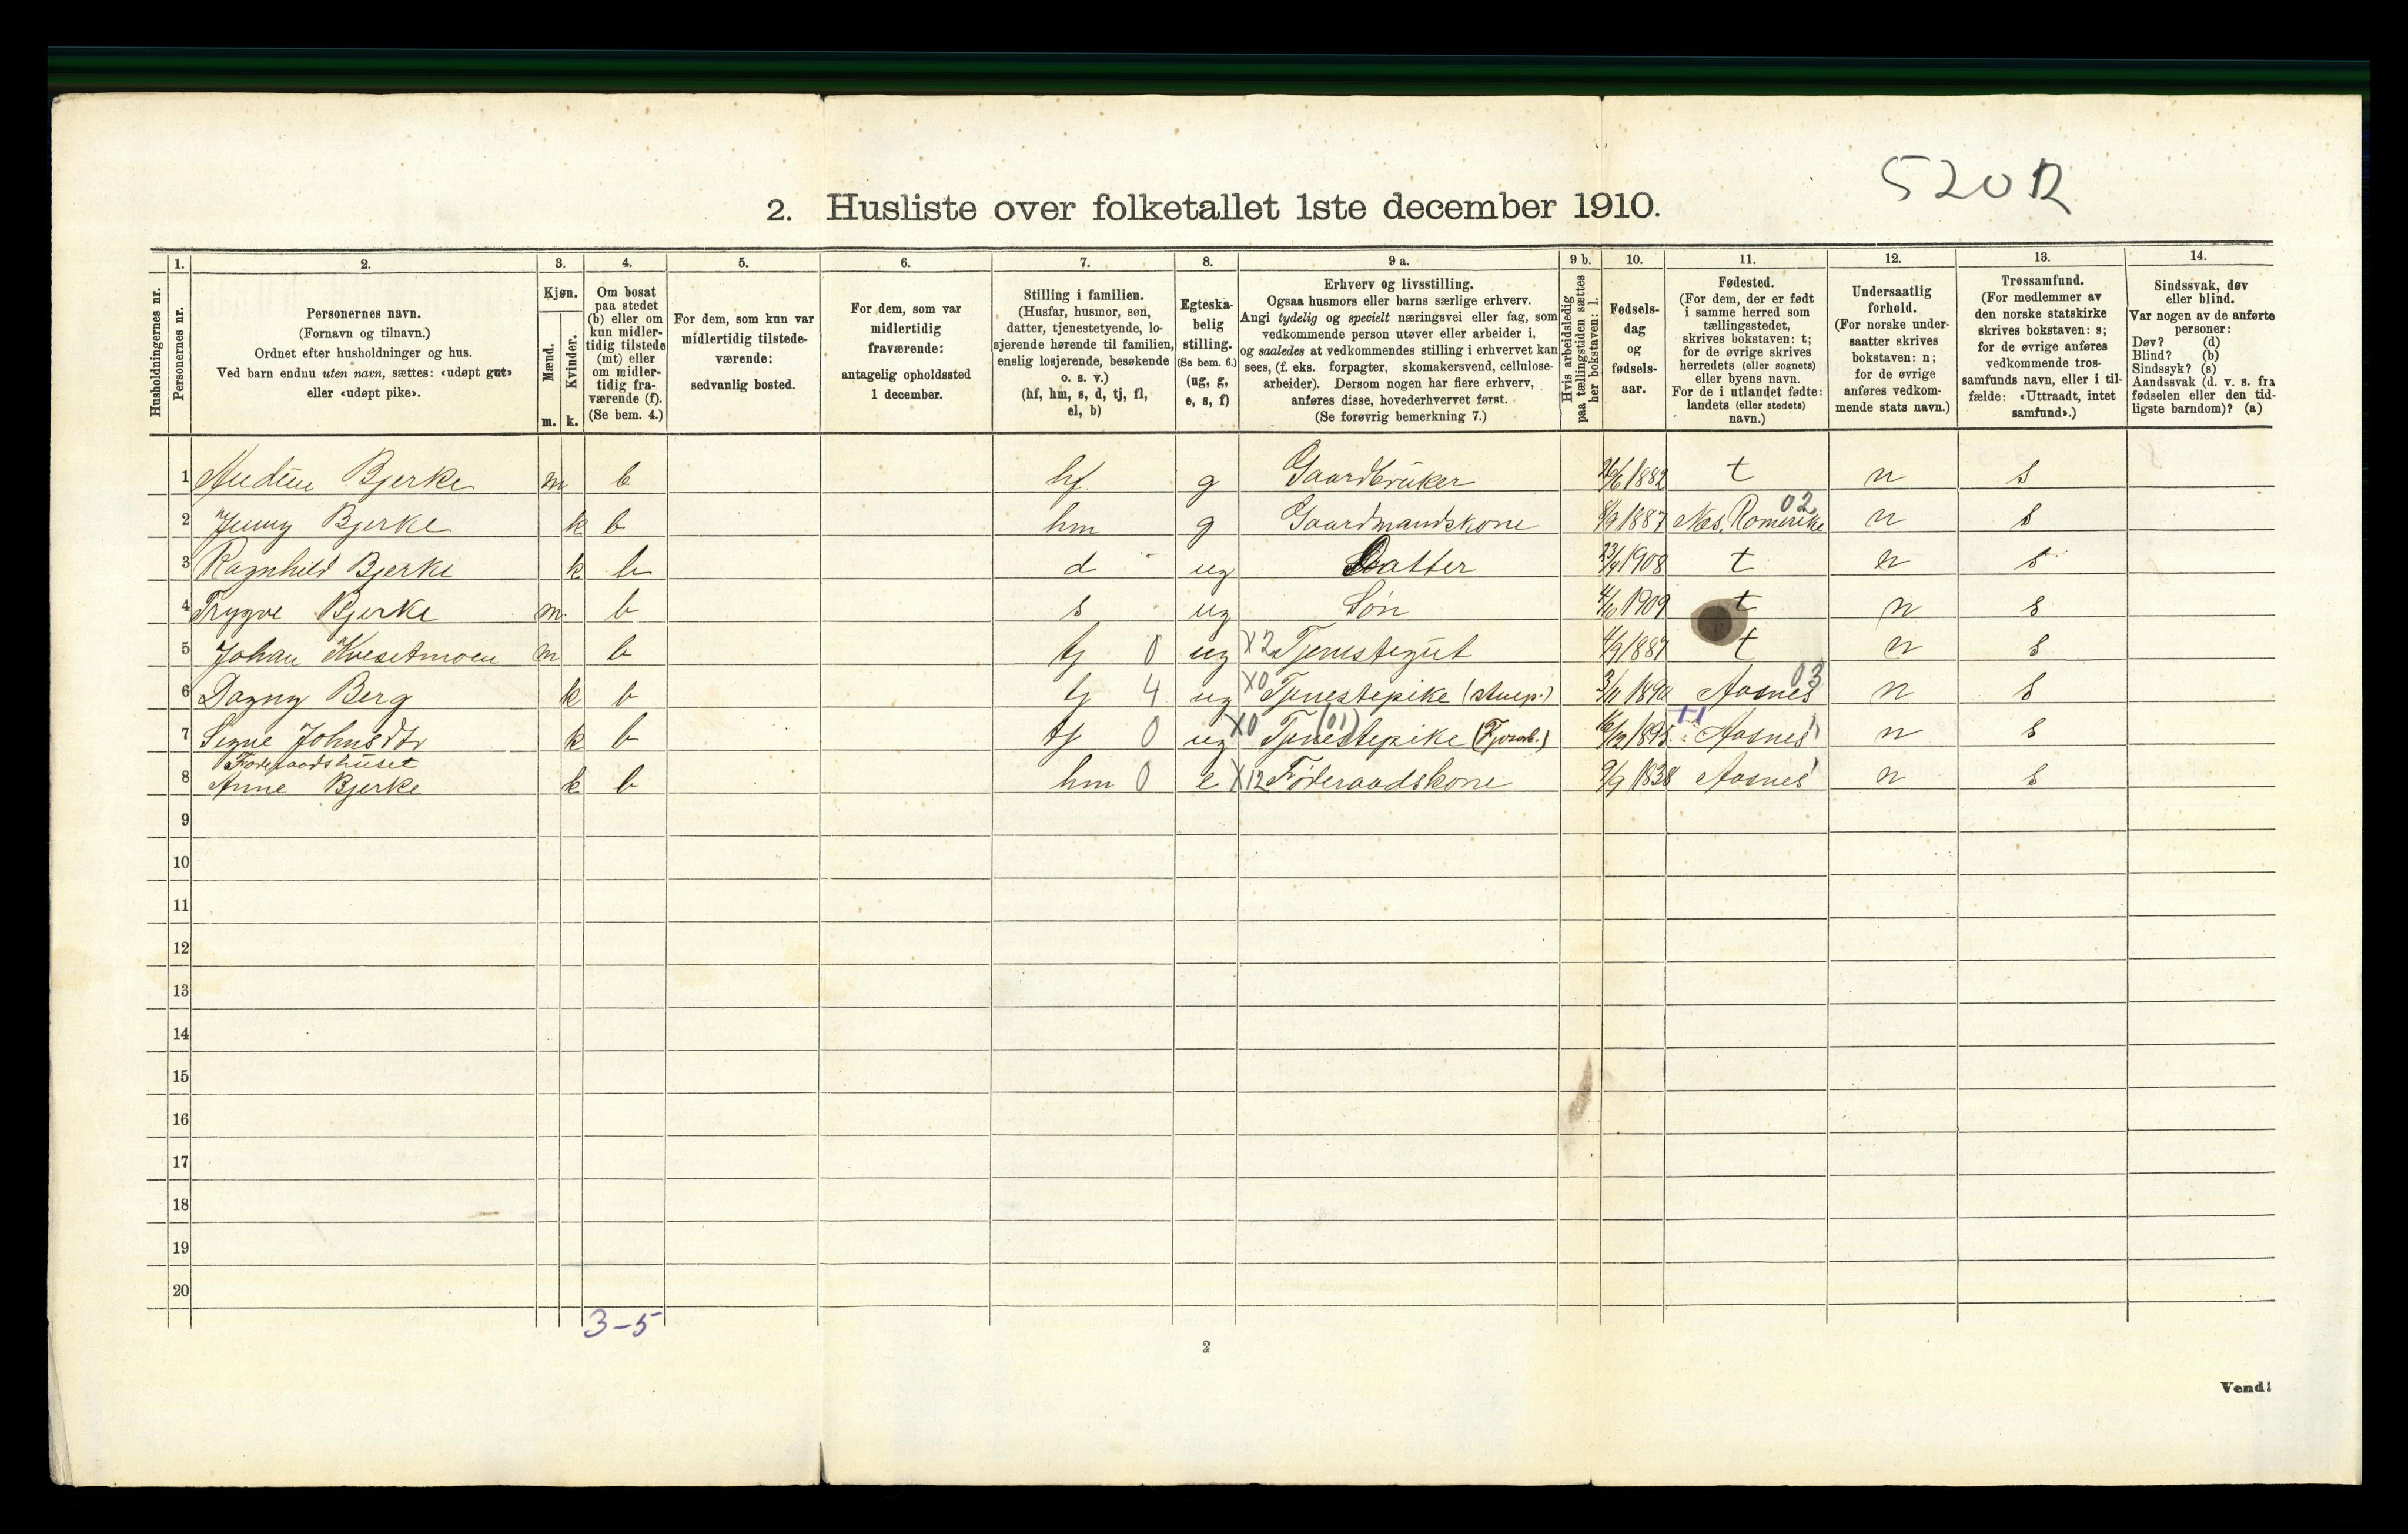 520 12
2. Husliste over folketallet 1ste december 1910.
Husholdningernes nr.
1. Personernes nr.
2. Personernes navn.
(Fornavn og tilnavn.)
Ordnet efter husholdninger og hus.
Ved barn endnu uten navn, sættes: «udøpt gut»
eller «udøpt pike».
3. Kjøn.
Mænd. m.
Kvinder. k.
4. Om bosat
paa stedet
(b) eller om
kun midler-
tidig tilstede
(mt) eller
om midler-
tidig fra-
værende (f).
(Se bem. 4.)
5. For dem, som kun var
midlertidig tilstede-
værende:
sedvanlig bosted.
6. For dem, som var
midlertidig
fraværende:
antagelig opholdssted
1 december.
7. Stilling i familien.
(Husfar, husmor, søn,
datter, tjenestetyende, lo-
sjerende hørende til familien,
enslig losjerende, besøkende
o. s. v.)
(hf, hm, s, d, tj, fl,
el, b)
8. Egteska-
belig
stilling.
(Se bem. 6.)
(ug, g,
e, s, f)
9 a. Erhverv og livsstilling.
Ogsaa husmors eller barns særlige erhverv.
Angi tydelig og specielt næringsvei eller fag, som
vedkommende person utøver eller arbeider i,
og saaledes at vedkommendes stilling i erhvervet kan
sees, (f. eks. forpagter, skomakersvend, cellulose-
arbeider). Dersom nogen har flere erhverv,
anføres disse, hovederhvervet først.
(Se forøvrig bemerkning 7.)
9 b. Hvis arbeidsledig
paa tællingstiden sættes
her bokstaven: l.
10. Fødsels-
dag
og
fødsels-
aar.
11. Fødested.
(For dem, der er født
i samme herred som
tællingsstedet,
skrives bokstaven: t;
for de øvrige skrives
herredets (eller sognets)
eller byens navn.
For de i utlandet fødte:
landets (eller stedets)
navn.)
12. Undersaatlig
forhold.
(For norske under-
saatter skrives
bokstaven: n;
for de øvrige
anføres vedkom-
mende stats navn.)
13. Trossamfund.
(For medlemmer av
den norske statskirke
skrives bokstaven: s;
for de øvrige anføres
vedkommende tros-
samfunds navn, eller i til-
fælde: «Uttraadt, intet
samfund».)
14. Sindssvak, døv
eller blind.
Var nogen av de anførte
personer:
Døv? (d)
Blind? (b)
Sindssyk? (s)
Aandssvak (d. v. s. fra
fødselen eller den tid-
ligste barndom)? (a)
1 Audun Bjerke m b hf g Gaardbruker 26/6 1882 t n s
2 Jenny Bjerke k b hm g Gaardmandskone 1887 Nes. Romerike 02 n s
3 Ragnhild Bjerke k b d ug Datter 1908 t n s
4 Trygve Bjerke m b s ug Søn 4/10 1909 t n s
5 Johan Kvesetmoen m b tj 0 ug X2 Tjenestegut 4/9 1887 t n s
6 Dagny Berg k b tj 4 ug X0 Tjenestepike (stuep.) 3/11 1890 Aasnes 03 n s
7 Signe Johnsdtr k b tj 0 ug X0 (01) Tjenestepike (Fjøsarb.) 16/12 1895 Aasnes n s
Føderaadshuset
8 Anne Bjerke k b hm 0 e X12 Føderaadskone 9/9 1838 Aasnes n s
9
10
11
12
13
14
15
16
17
18
19
20
3-5
2
Vend!